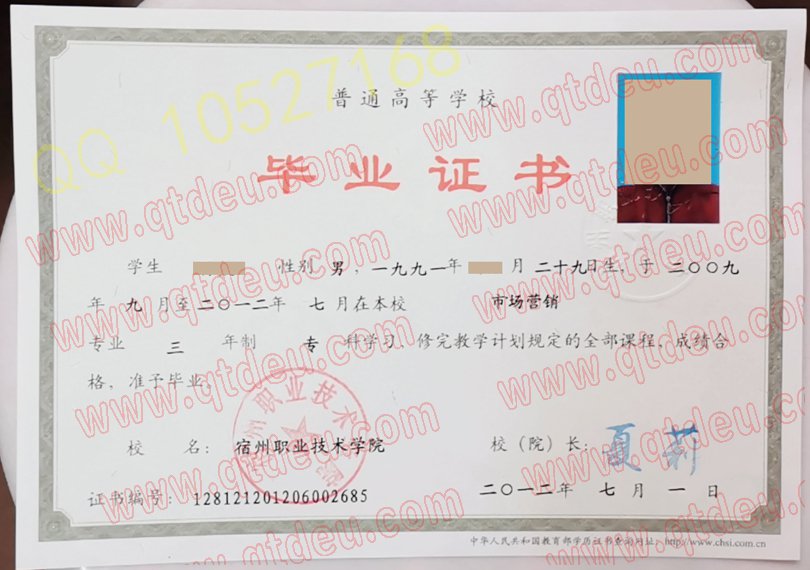 QQ 10527168
普通高等学校
毕业证书
学生 性别 男，一九九一年 月二十九日生，于二〇〇九
年 九 月至二〇一二年 七月在本校 市场营销
专业 三 年制 专 科学习，修完教学计划规定的全部课程，成绩合
格，准予毕业。
校 名：宿州职业技术学院 校（院）长：夏莉
证书编号：128121201206002685 二〇一二年 七 月 一 日
中华人民共和国教育部学历证书查询网址：http://www.chsi.com.cn
www.qtdeu.com
www.qtdeu.com
www.qtdeu.com
www.qtdeu.com
www.qtdeu.com
www.qtdeu.com
www.qtdeu.com
www.qtdeu.com
www.qtdeu.com